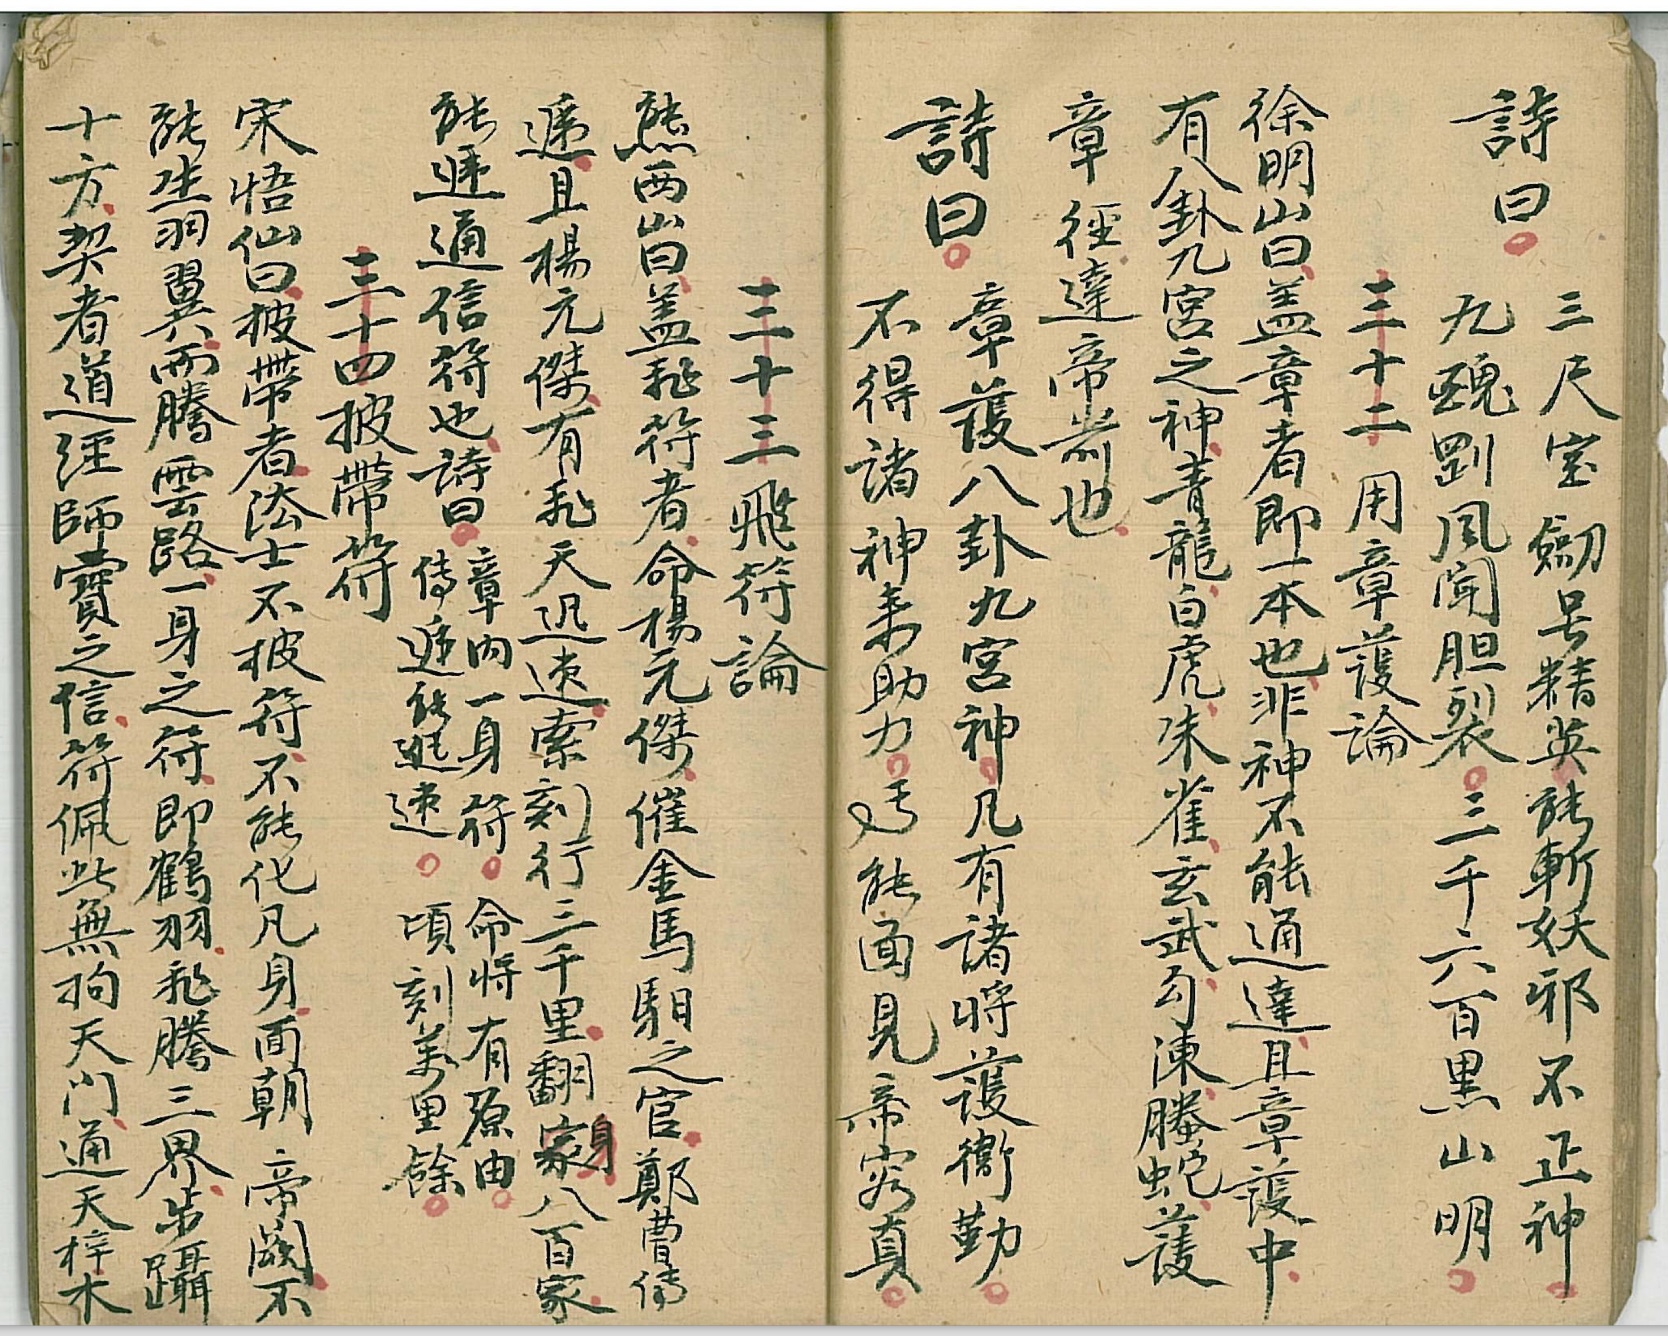 詩曰
三尺宝劒号精英能斬妖邪不正神
九醜罡風聞胆裂三千六百黑山明
三十二用章護論
徐明山曰盖章者即一本也非神不能通達且章護中
有八卦九宮之神青龍白虎朱雀玄武勾陳螣蛇護
章徑達帝前也
詩曰
章護八卦九宮神凡有諸將護衛勤
不得諸神来助力 能面見帝容真
三十三飛符論
熊西山曰盖飛符者命楊元傑催金馬馹之官鄭曹傳
遞且楊元傑有飛天迅速索刻行三千里翻身家八百家
能遞通信符也詩曰
章內一身符命將有原由
傳遞能迅速頃刻萬里餘
三十四披帶符
宋悟仙曰披帶者法士不披符不能化凡身面朝帝闕不
能生羽翼而騰雲路一身之符即鶴羽飛騰三界步躡
十方契者道經師寶之信符佩此無拘天門通天梓木